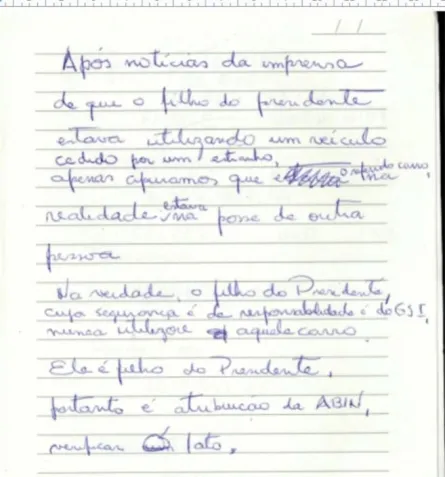 Após notícias da imprensa
de que o filho do presidente
estava utilizando um veículo
cedido por um estranho,
apenas apuramos que o referido carro, na
realidade estava na posse de outra
pessoa
Na verdade, o filho do Presidente,
cuja segurança é de responsabilidade é do GSI,
nunca utilizou aquele carro.
Ele é filho do Presidente,
portanto é atribuição da ABIN,
verificar fato,